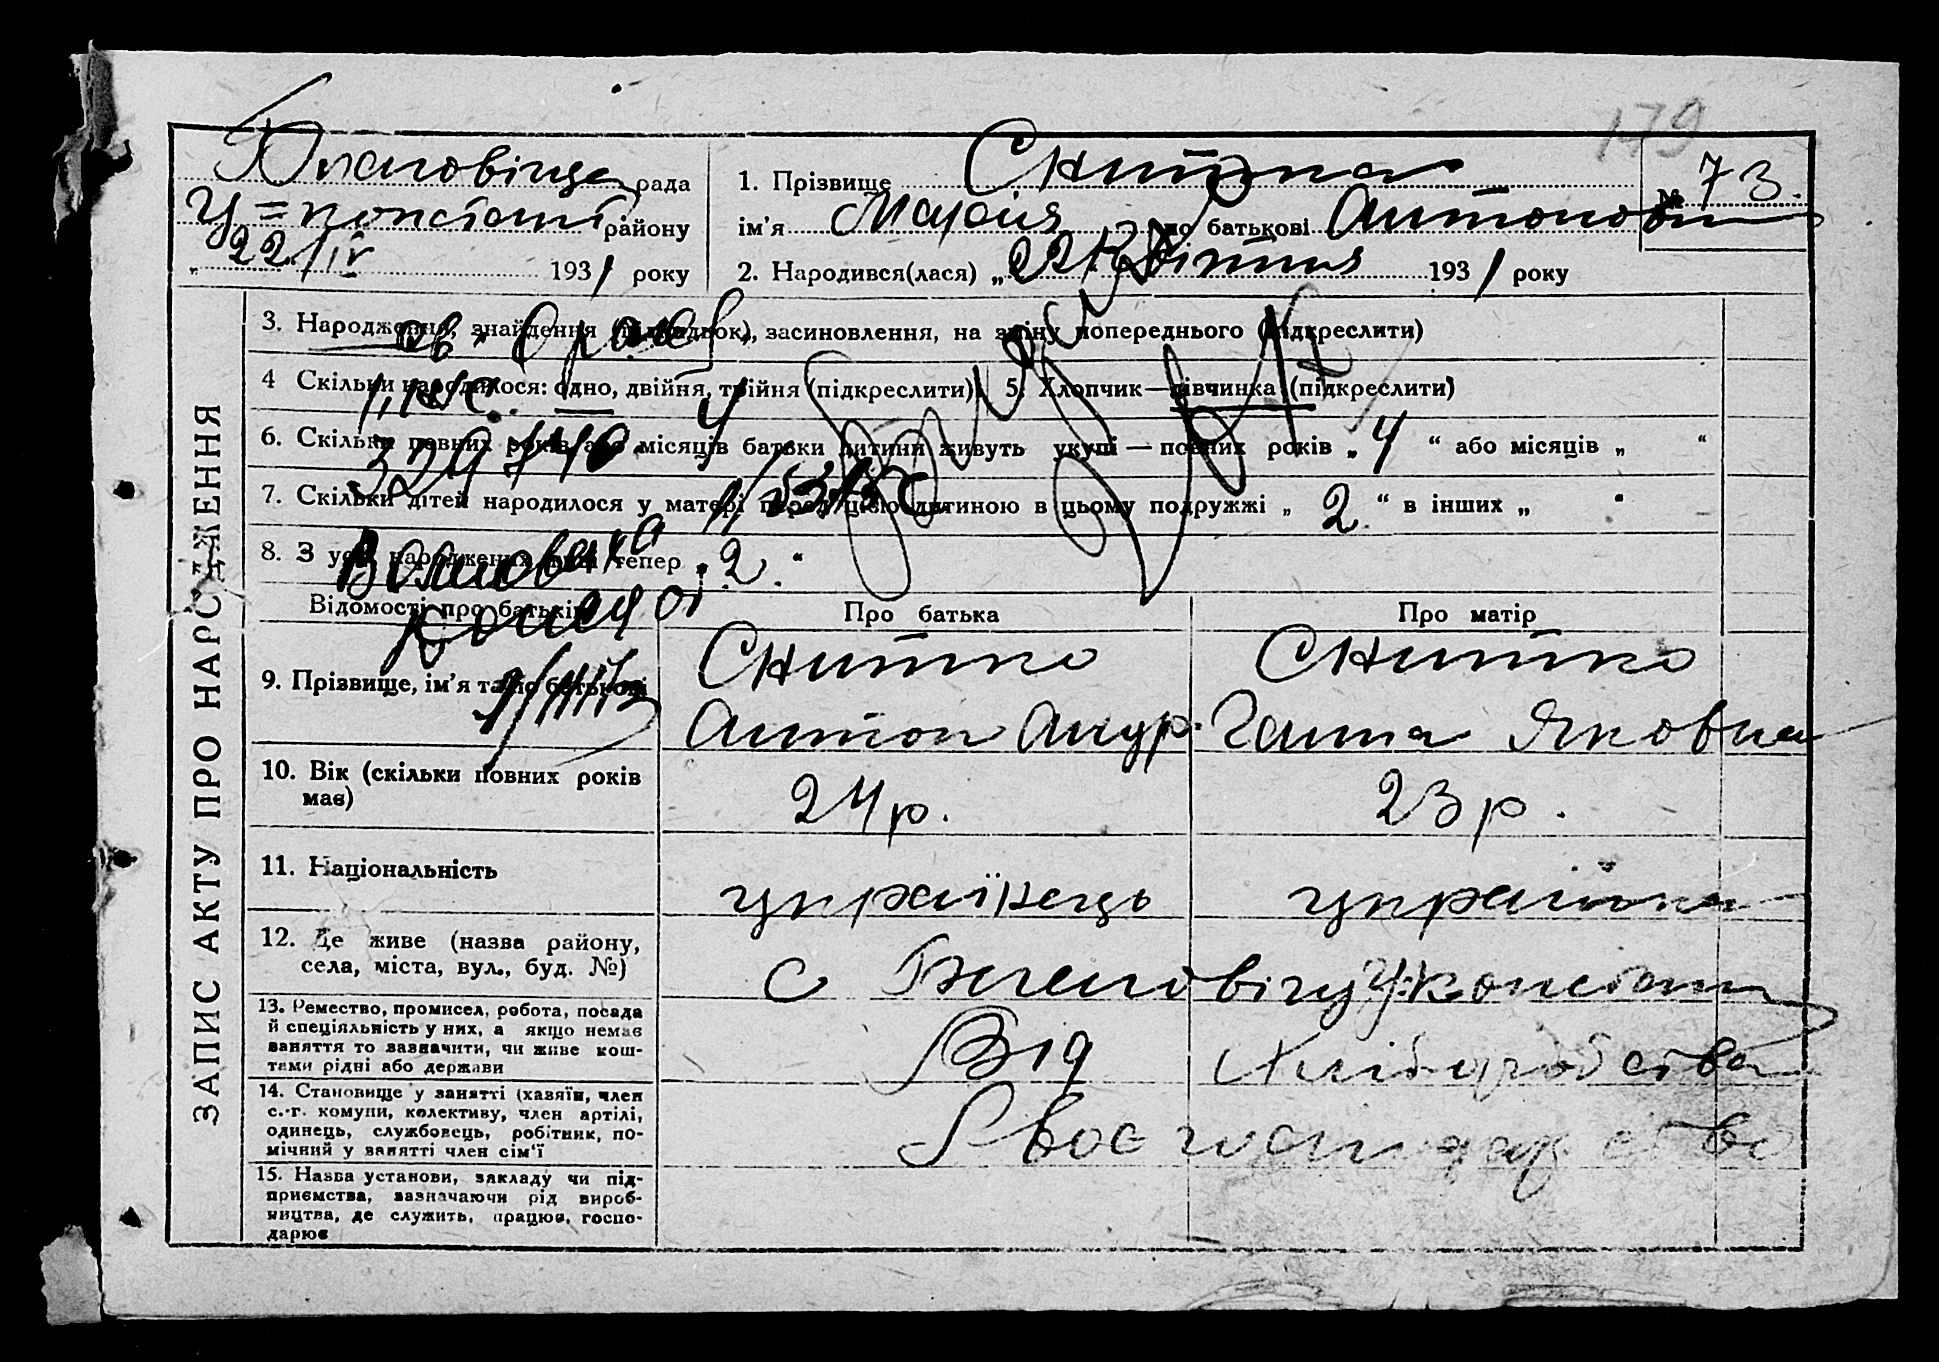 179
Благовіще рада
У=констант району
"22/IV 1931 року
1. Прізвище Снитка
№ 73.
ім'я Марія по батькові Антонови
2. Народився(лася) „22 Квітня 1931 року
ЗАПИС АКТУ ПРО НАРОДЖЕННЯ
3. Народження, знайдення (підкидьок), засиновлення, на зміну попереднього (підкреслити)
4 Скільки народилося: одно, двійня, трійня (підкреслити) 5. Хлопчик—дівчинка (підкреслити)
6. Скільки повних років або місяців батьки дитини живуть укупі — повних років „4 “ або місяців „ “
7. Скільки дітей народилося у матері перед цією дитиною в цьому подружжі „ 2 “ в інших „ "
8. З усіх народжених живі тепер „ 2. “
Відомості про батьків Про батька Про матір
9. Прізвище, ім'я та по батькові
Снитко Снитко
Антон Андр. Ганна Яковна
10. Вік (скільки повних років має)
24 р. 23 р.
11. Національність
українець українка
12. Де живе (назва району, села, міста, вул., буд. №)
с Благовіщ У-констант
13. Ремество, промисел, робота, посада й спеціяльність у них, а якщо немає заняття то зазначити, чи живе коштами рідні або держави
Від хліборобства
14. Становище у занятті (хазяїн, член с.-г. комуни, колективу, член артілі, одинець, службовець, робітник, помічний у занятті член сім'ї
Своє господарство
15. Назва установи, закладу чи підприємства, зазначаючи рід виробництва, де служить, працює, господарює